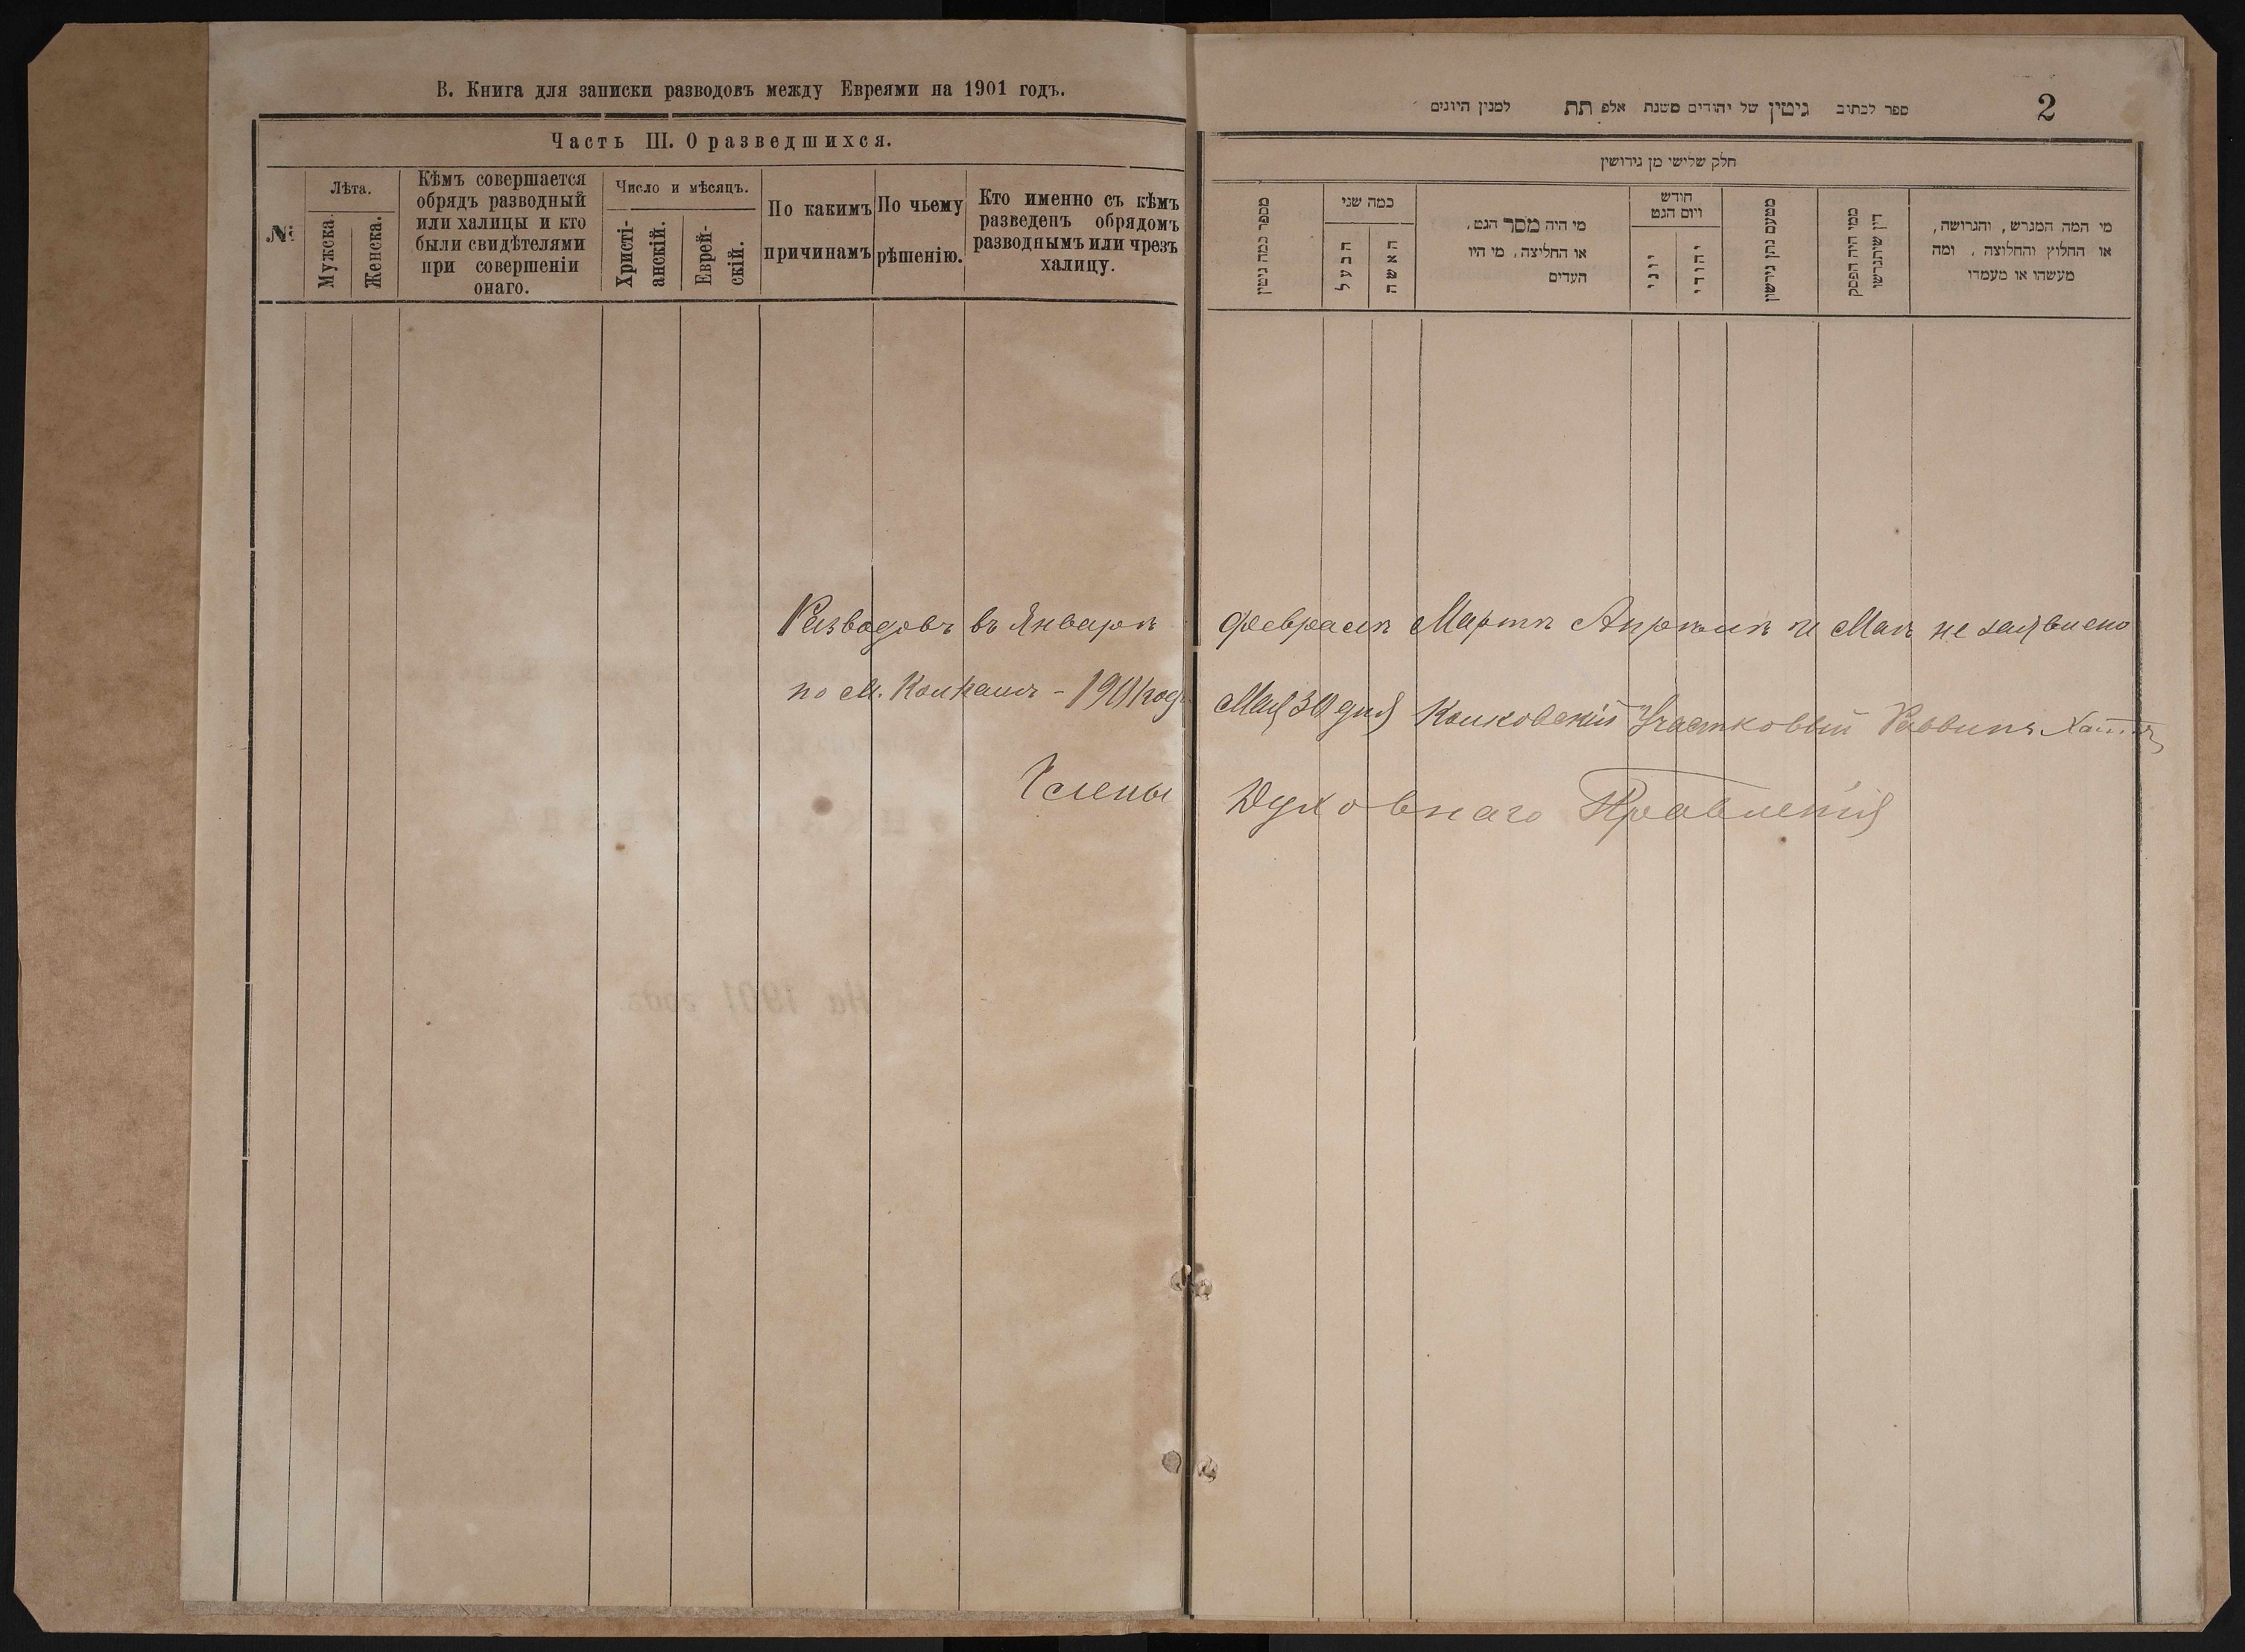 В. Книга для записки разводовъ между Евреями на 1901 годъ.
Часть III. О разведшихся.
№
Лѣта.
Мужска.
Женска.
Кѣмъ совершается
обрядъ разводный
или халицы и кто
были свидѣтелями
при совершеніи
онаго.
Число и мѣсяцъ.
Христі-
анскій.
Еврей-
скій.
По какимъ
причинамъ
По чьему
рѣшенію.
Кто именно съ кѣмъ
разведенъ обрядомъ
разводнымъ или чрезъ
халицу.
2
ספר לכתוב גיטין של יהודים משנת אלפ תת למנין היונים
חלק שלישי מן גירושין
מספר כמה גיטין
כמה שני
הבעל
האשה
מי היה מסר הגט,
או החליצה, מי היו
העדים
חודש
ויום הגט
יוני
יהודי
מטעם נתן גירושין
ממי היה הפסק
דין שיתגרשו
מי המה המגרש, והגרושה,
או החלוץ והחלוצה, ומה
מעשהו או מעמדו
Разводовъ въ Январѣ Февралѣ Мартѣ Апрѣлѣ и Маѣ не заявлено
по м. Колкамъ - 1901 года Мая 30 дня Колковскій Участковый Раввинъ
Члены Духовнаго Правленія